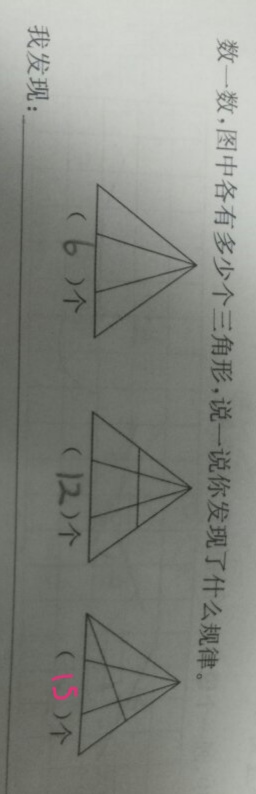 数一数,图中各有多少个三角形,说一说你发现了什么规律。
( 6 )个 ( 12 )个 ( 15 )个
我发现: